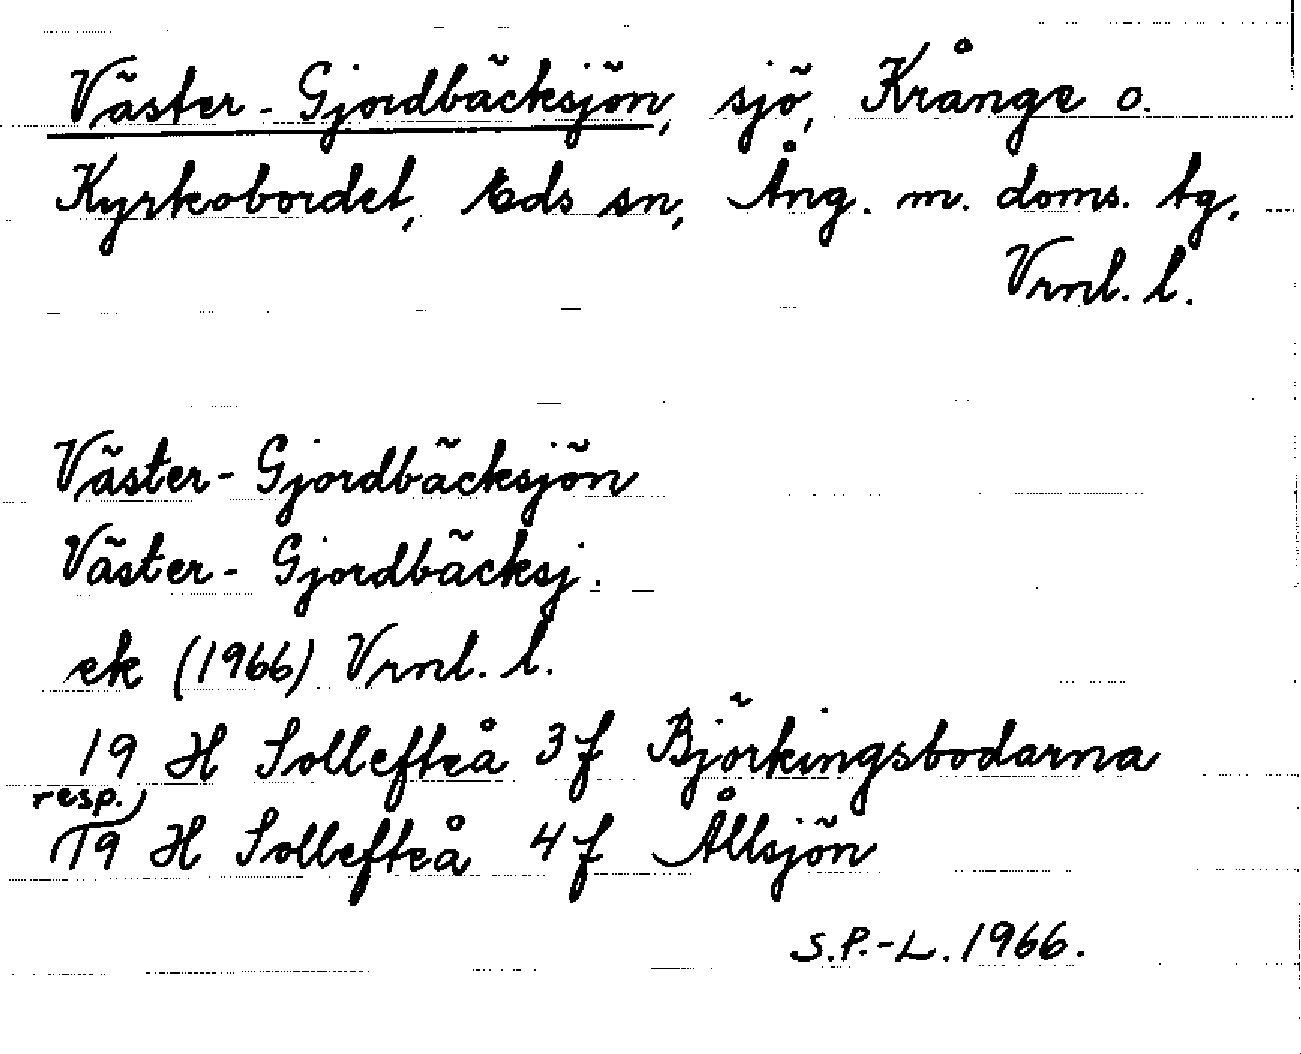 Väster-Gjordbäcksjön, sjö, Krånge o.
Kyrkobordet, Eds sn, Ång. m. doms. tg,
Vrnl. l.
Väster-Gjordbäcksjön
Väster-Gjordbäcksj.
ek (1966) Vrnl. l.
19 H Sollefteå 3f Björkingsbodarna
resp.
19 H Sollefteå 4f Ållsjön
S.P.-L. 1966.